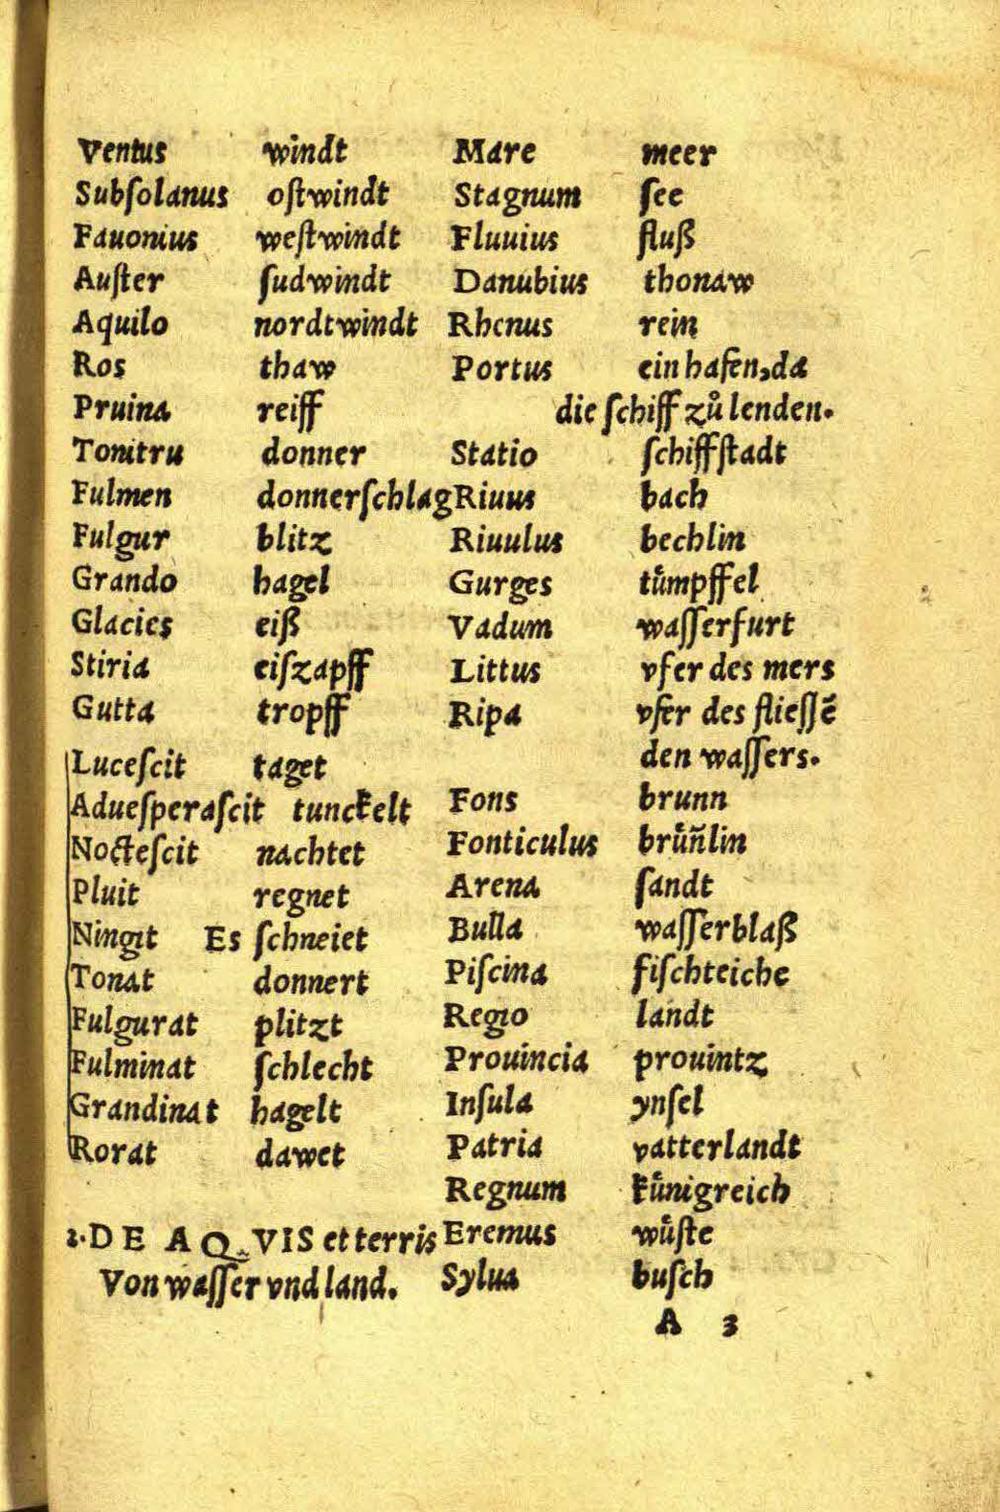 Ventus windt
Subſolanus oſtwindt
Fauonius weſtwindt
Auſter ſudwindt
Aquilo nordtwindt
Ros thaw
Pruina reiff
Tonitru donner
Fulmen donnerſchlag
Fulgur blitz
Grando hagel
Glacies eiß
Stiria eiſzapff
Gutta tropff
Luceſcit taget
Adueſperaſcit tunckelt
Nocteſcit nachtet
Pluit regnet
Ningit Es ſchneiet
Tonat donnert
Fulgurat plitzt
Fulminat ſchlecht
Grandinat hagelt
Rorat dawet
2. DE AQVIS et terris
Von waſſer vnd land.
Mare meer
Stagnum ſee
Fluuius fluß
Danubius thonaw
Rhenus rein
Portus ein hafen, da
die ſchiff zů lenden.
Statio ſchiffſtadt
Riuus bach
Riuulus bechlin
Gurges tuͤmpffel
Vadum waſſerfurt
Littus vfer des mers
Ripa vfer des flieſſẽ
den waſſers.
Fons brunn
Fonticulus bruͤñlin
Arena ſandt
Bulla waſſerblaß
Piſcina fiſchteiche
Regio landt
Prouincia prouintz
Inſula ynſel
Patria vatterlandt
Regnum kuͤnigreich
Eremus wuͤſte
Sylua buſch
A 3